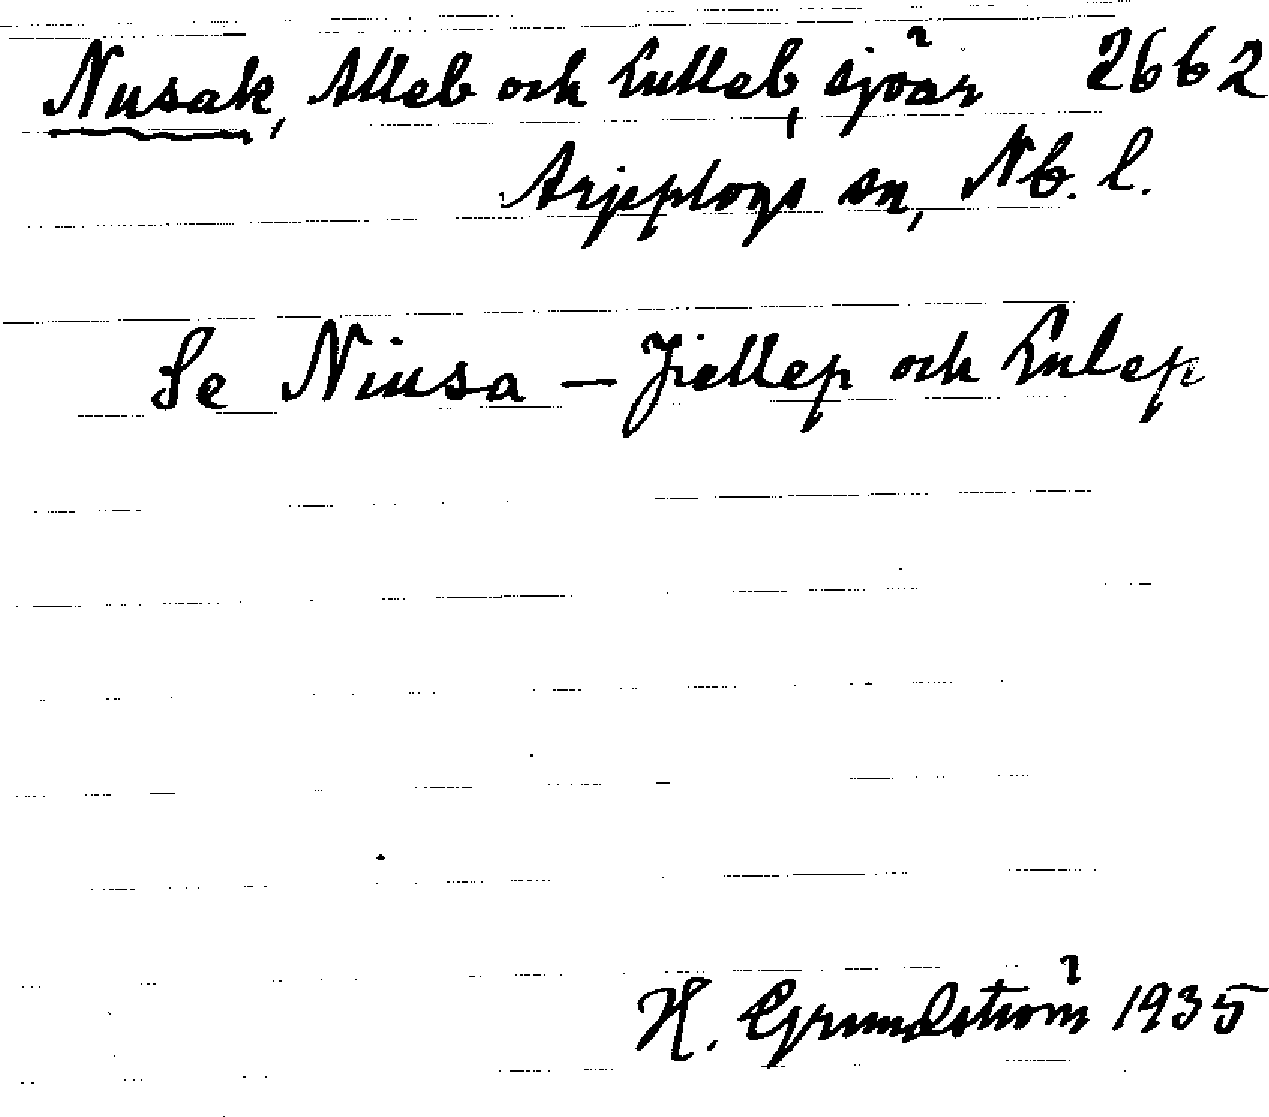 Nusak, Alleb och Lulleb, sjöar 2662
Arjeplogs sn, Nb. l.
Se Niusa — Jiellep och Lulep
H. Grundström 1935